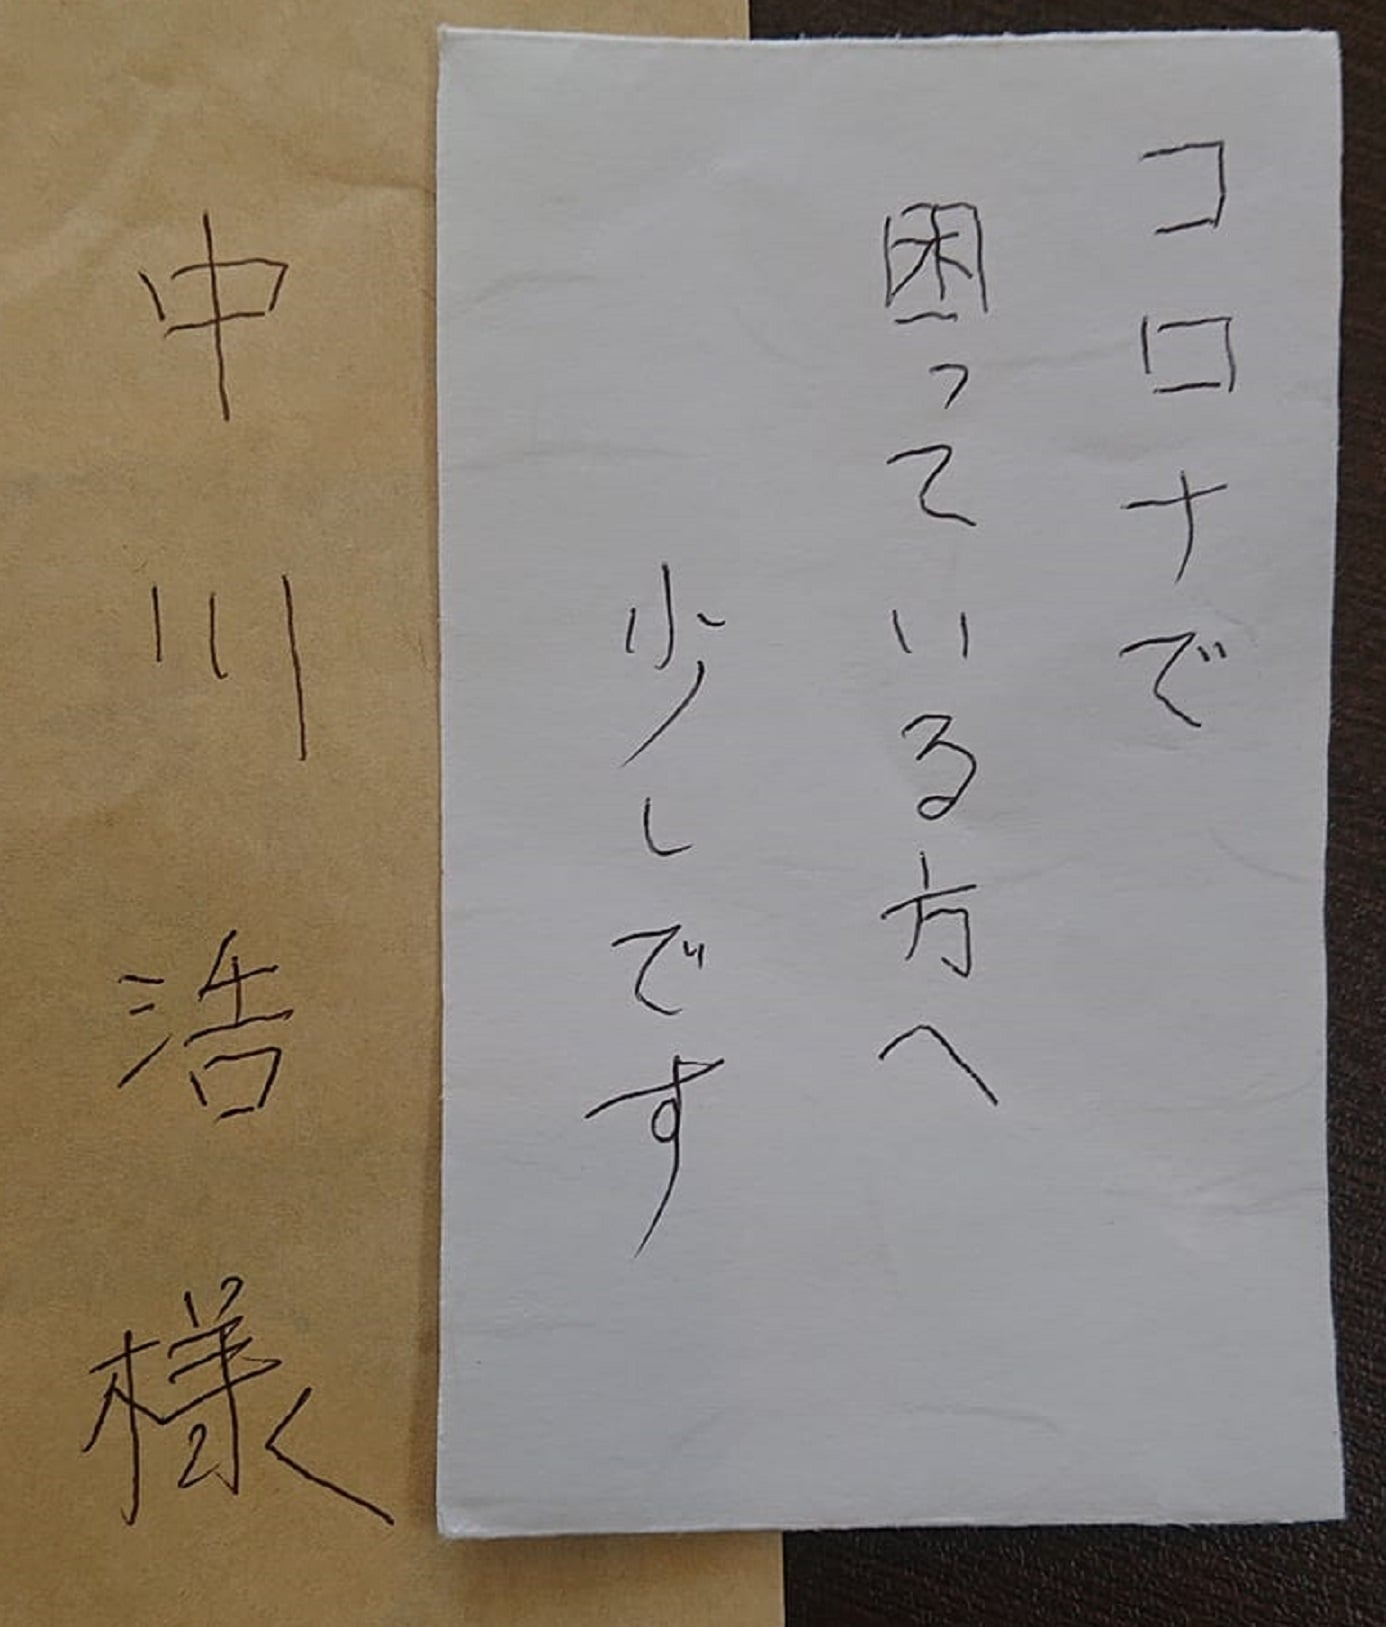 コロナで
困っている方へ
少しです
中川浩様